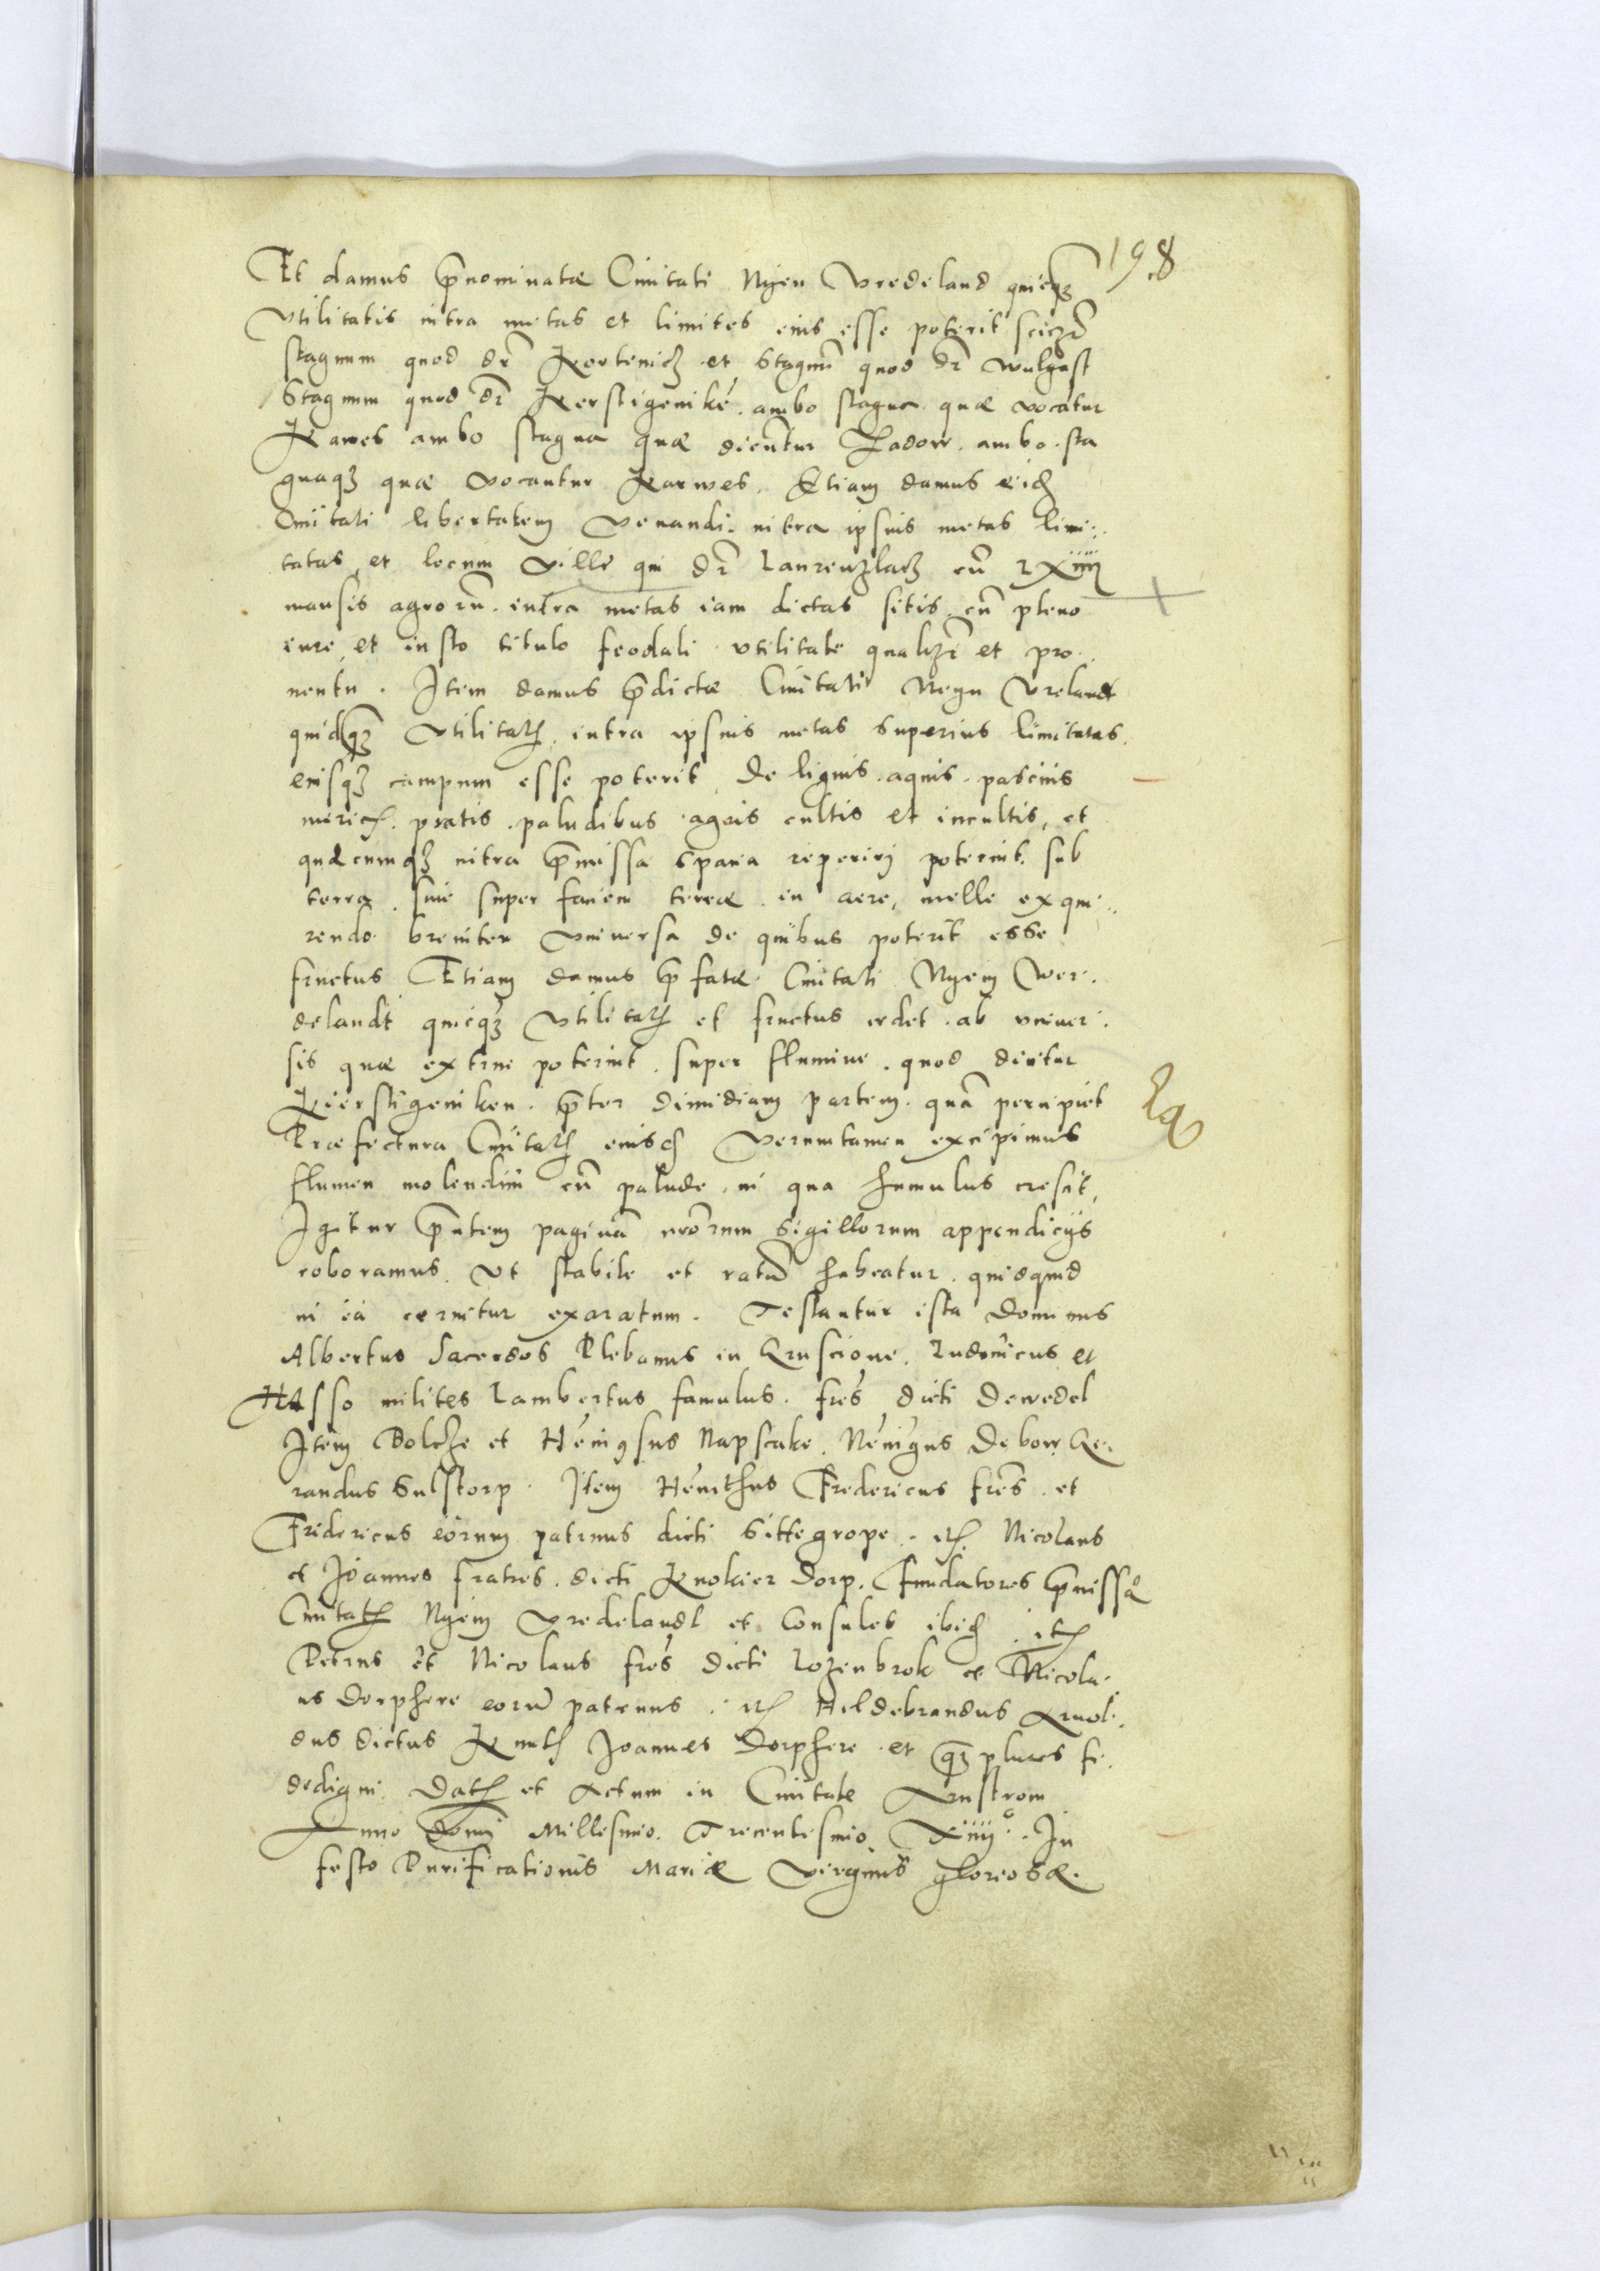 198
Et damus p̄nominatæ Ciuitati Nyen Vredeland quicq
vtilitatis intra metas et limites eius esse poterit scilz
stagnum quod dr̄ Kortenicz et Stagnū quod dr̄ wulgast
Stagnum quod dr̄ Kerstigenikē. ambo stagna quæ vocatur
Kawes ambo stagna quæ dicūtur Zadow. ambo. sta
gnaqz quæ vocantur Karwes. Etiam damus eid
Ciuitati libertatem Venandi. intra ipsius metas limi..
tatas, et locum Ville qui dr̄ Laurenzlacz cū LXiiii
mansis agrorū. intra metas iam dictas sitis. cū pleno
iure, et insto titulo feodali vtilitate qualizr̄ et pro..
uentu. Item damus p̄dictæ Ciuitati Negn Vrelandt
quidqz Vtilitatis, intra ipsius metas superius limitatas.
eiusqz campum esse poterit, De lignis. aquis. pascuis
mericis. pratis. paludibus agris cultis et incultis, et
quæcumqz intra p̄missa spacia reperiri poterint. sub
terra. siue super faciem terræ. in aere, melle exqui..
rendo breuiter Vniuersa de quibus poterit esse
fructus Etiam damus p̄fatæ Ciuitati Nyem Wer.
delandt quicqz vtilitatis et fructus cedet. ab vniuer.
sis quæ extrui poterint. super flumine. quod dicitur
Kierstigeniken. p̄ter dimidiam partem. quā percipiet
Præfectura Ciuitatis eiusd Verumtamen excipimus
flumen molendini cū palude, in qua humulus crescit,
Igitur p̄ntem paginā nrōrum sigillorum appendicijs
roboramus. Vt stabile et ratū habeatur. quidquid
in ea cernitur exaratum. Testantur ista Dominus
Albertus Sacerdos Plebanus in Gruscione. Ludouicus et
Hasso milites Lambertus famulus. frēs dicti Dewedel
Item Boltze et Henigsus Napscake. Nenigus Debow Ge.
randus Sulstorp. Item Henithus Fredericus frēs. et
Fridericus eorum patruus dicti Sittegrope. itē Nicolaus
et Joannes fratres. dicti Knokierdorp. Fundatores p̄missæ
Ciuitatis Nyem Vredelandt et Consules ibid. itē
Petrus et Nicolaus frēs dicti Lozenbrok et Nicola.
us Dorphere eorū patruus. itē Hildebrandus Arnol.
dus dictus Knuth Joannes Dorphere. et qz plures fi.
dedigni. Datē et Actum in Ciuitate Arnstrom
Anno Domi Millesimo. Trecentesimo. Xiiii°. In
festo Purificationis Mariæ Virginis gloriosæ.